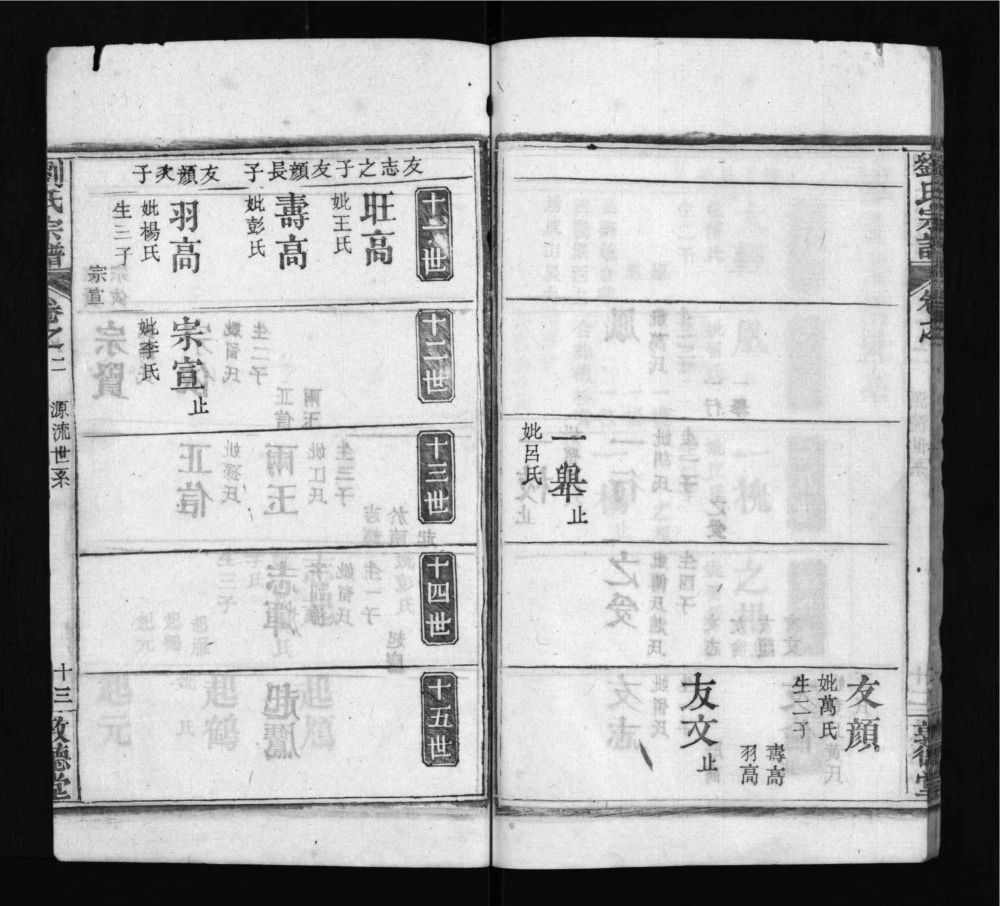 友顔
妣萬氏
生二子
壽高
羽高
友文止
一舉止
妣呂氏
十一世
十二世
十三世
十四世
十五世
友志之子
旺高
妣王氏
友顔長子
壽高
妣彭氏
友顔次子
羽高
妣楊氏
生三子
宗宣
宗宣止
妣李氏
劉氏宗譜
卷之二
源流世系
十三
敦德堂